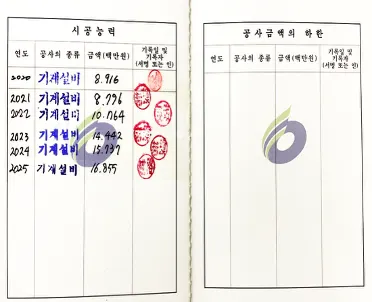 시공능력
연도 공사의 종류 금액(백만원) 기록일 및 기록자 (서명 또는 인)
2020 기계설비 8.916
2021 기계설비 8.796
2022 기계설비 10.064
2023 기계설비 14.442
2024 기계설비 15.737
2025 기계설비 16.855
공사금액의 하한
연도 공사의 종류 금액(백만원) 기록일 및 기록자 (서명 또는 인)